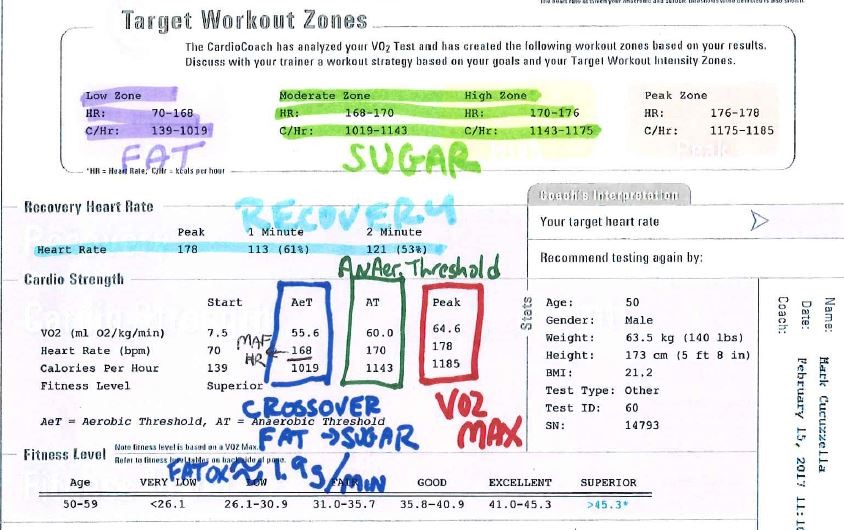 Target Workout Zones
The CardioCoach has analyzed your VO2 Test and has created the following workout zones based on your results.
Discuss with your trainer a workout strategy based on your goals and your Target Workout Intensity Zones.
Low Zone Moderate Zone High Zone Peak Zone
HR: 70-168 HR: 168-170 HR: 170-176 HR: 176-178
C/Hr: 139-1019 C/Hr: 1019-1143 C/Hr: 1143-1175 C/Hr: 1175-1185
FAT SUGAR
*HR = Heart Rate, C/Hr = kcals per hour
Recovery Heart Rate
RECOVERY
Peak 1 Minute 2 Minute
Heart Rate 178 113 (61%) 121 (53%)
Coach's Interpretation
Your target heart rate
Recommend testing again by:
Cardio Strength
AnAer. Threshold
Start AeT AT Peak
VO2 (ml O2/kg/min) 7.5 55.6 60.0 64.6
MAF HR
Heart Rate (bpm) 70 168 170 178
Calories Per Hour 139 1019 1143 1185
Fitness Level Superior
CROSSOVER
FAT → SUGAR
VO2 MAX
AeT = Aerobic Threshold, AT = Anaerobic Threshold
Stats
Age: 50
Gender: Male
Weight: 63.5 kg (140 lbs)
Height: 173 cm (5 ft 8 in)
BMI: 21.2
Test Type: Other
Test ID: 60
SN: 14793
Name: Mark Cucuzzella
Date: February 15, 2017 11:10
Coach:
Fitness Level
Note fitness level is based on a VO2 Max.
Refer to fitness level tables on backside of page.
FATOX ≈ 1.9g/MIN
Age VERY LOW LOW FAIR GOOD EXCELLENT SUPERIOR
50-59 <26.1 26.1-30.9 31.0-35.7 35.8-40.9 41.0-45.3 >45.3*